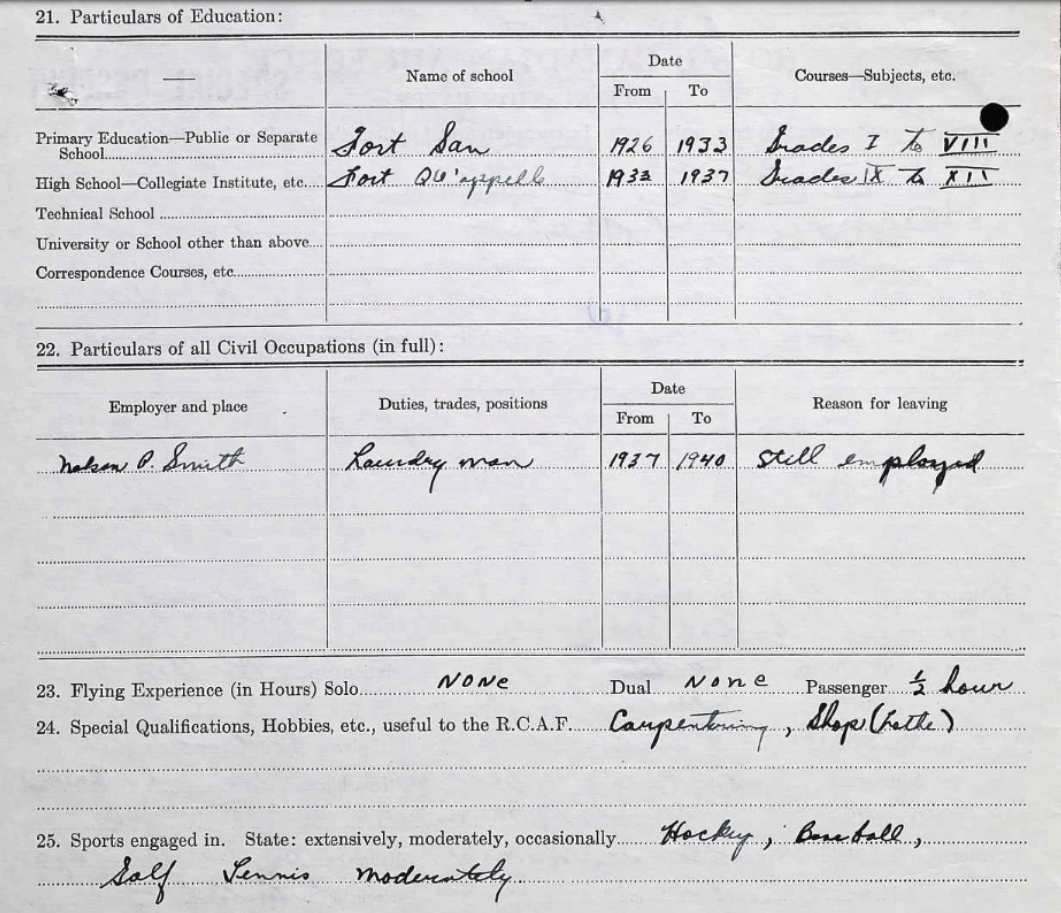 21. Particulars of Education:
Name of school
Date
From To
Courses—Subjects, etc.
Primary Education—Public or Separate
School Fort San 1926 1933 Grades I to VIII
High School—Collegiate Institute, etc. Fort Qu'appelle 1933 1937 Grades IX to XII
Technical School
University or School other than above
Correspondence Courses, etc.
22. Particulars of all Civil Occupations (in full):
Employer and place
Duties, trades, positions
Date
From To
Reason for leaving
Nelson P. Smith Laundry man 1937 1940 Still employed
23. Flying Experience (in Hours) Solo NONE Dual NONE Passenger ½ hour
24. Special Qualifications, Hobbies, etc., useful to the R.C.A.F. Carpentering, Shop (Lathe)
25. Sports engaged in. State: extensively, moderately, occasionally Hockey, Baseball,
Golf Tennis Moderately